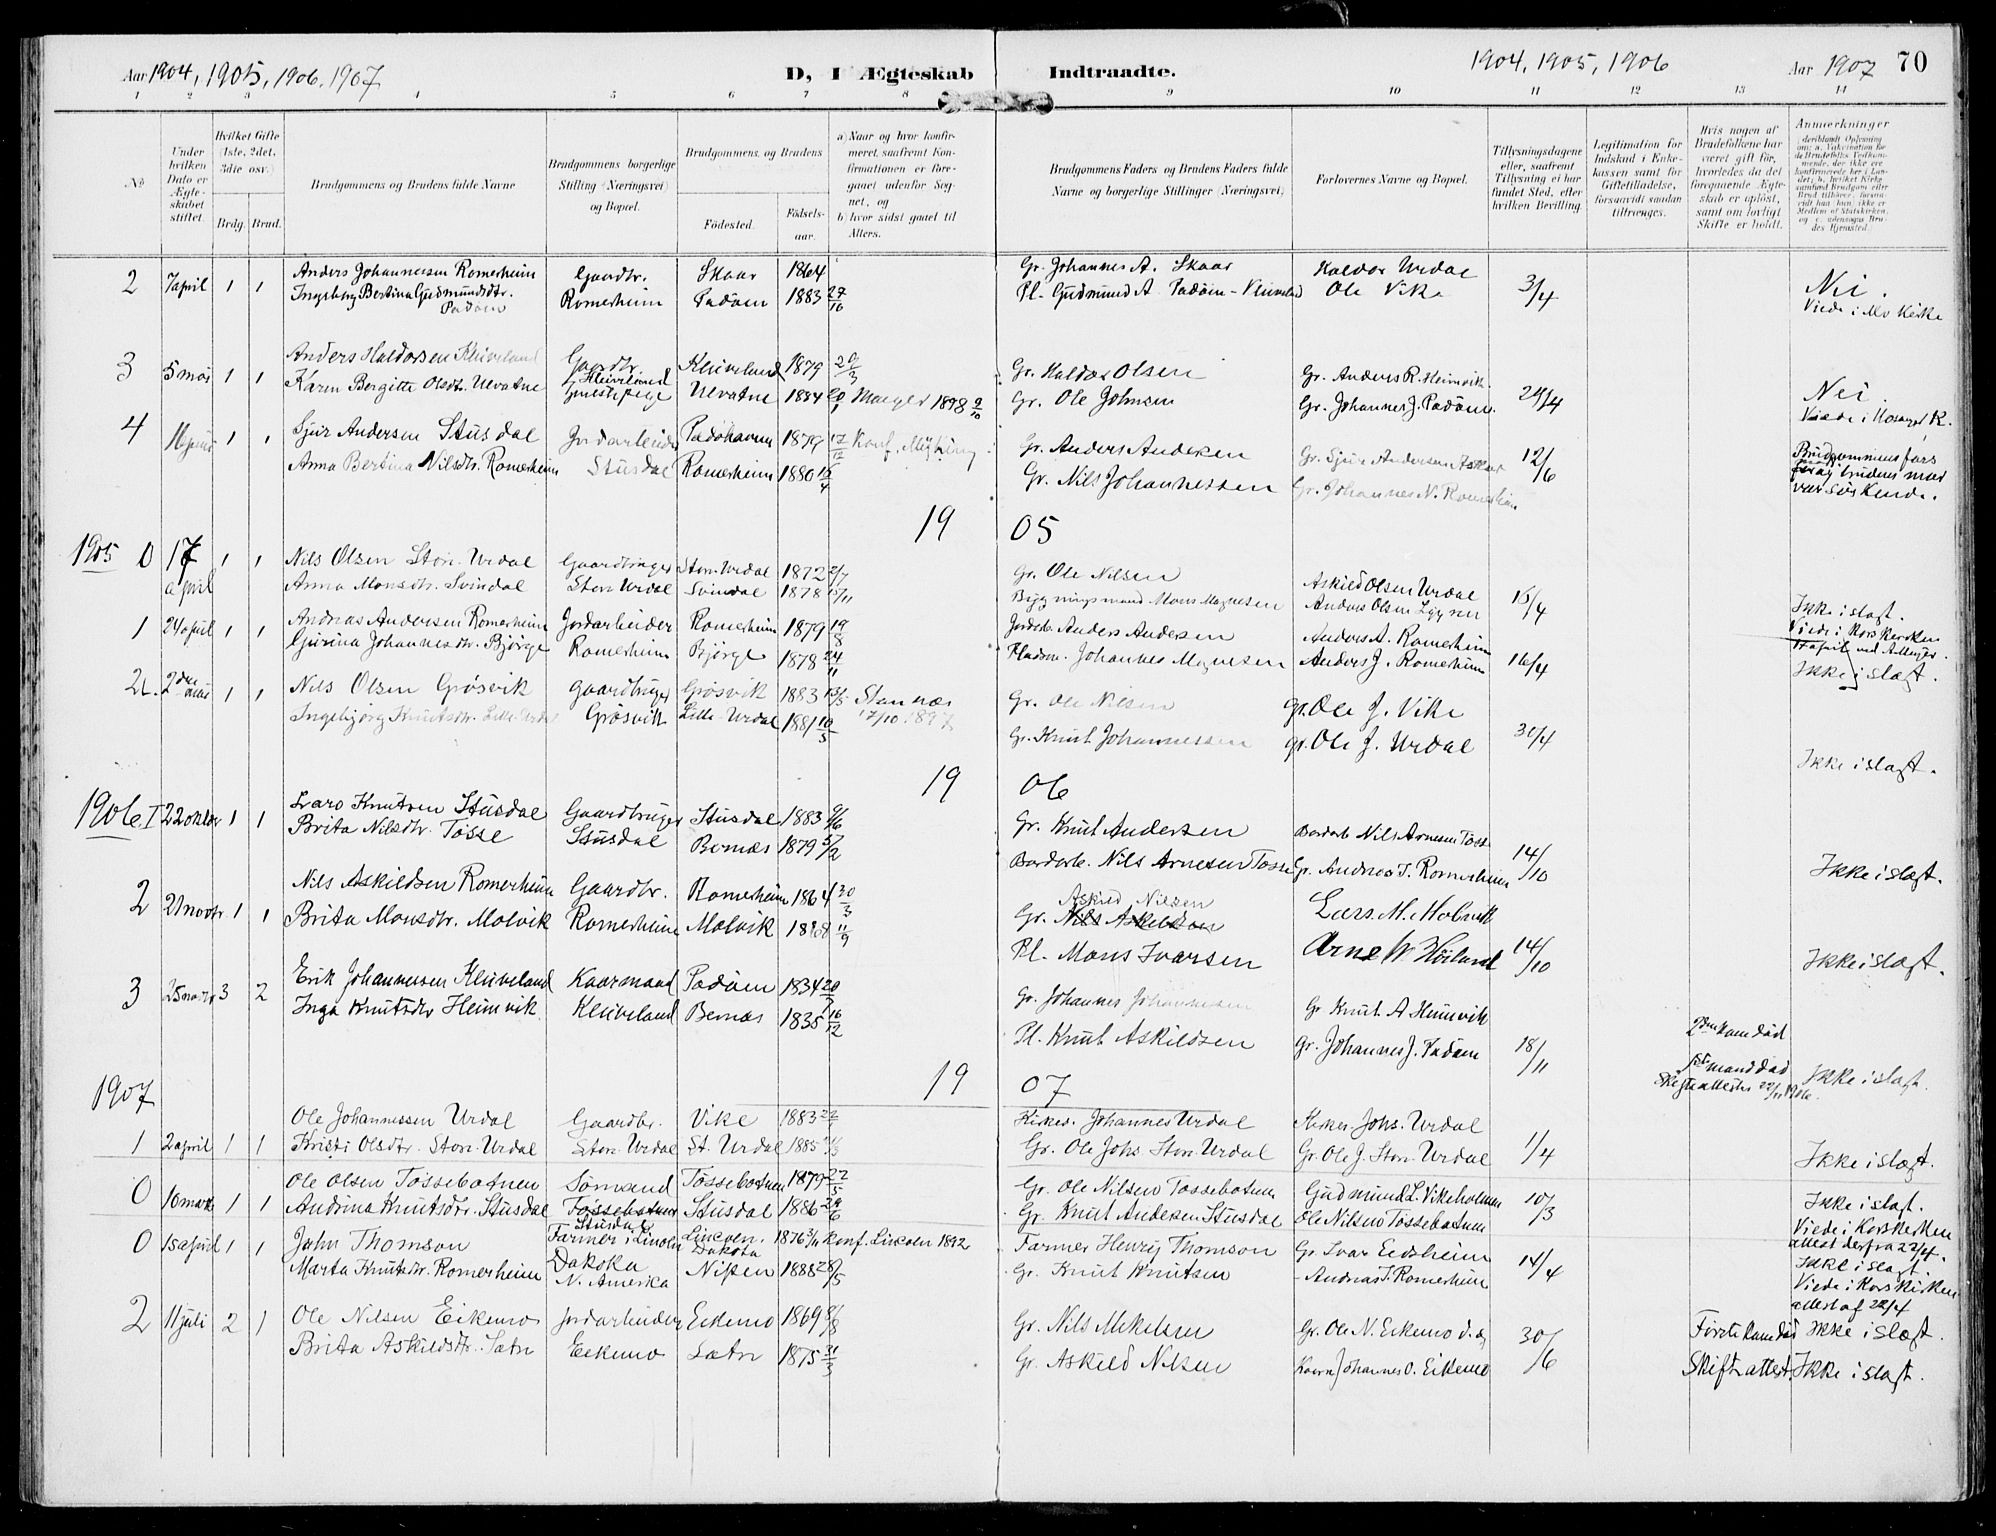 Aar 1904, 1905, 1906, 1907
D, I Ægteskab Indtraadte.
1904, 1905, 1906 Aar 1907 70
1 2 3 4 5 6 7 8 9 10 11 12 13 14
No
Under hvilken Dato er Ægteskabet stiftet.
Hvilket Gifte (1ste, 2det, 3die osv.)
Brdg. Brud.
Brudgommens og Brudens fulde Navne
Brudgommens borgerlige Stilling (Næringsvei) og Bopæl.
Brudgommens og Brudens
Fødested. Fødselsaar.
a) Naar og hvor konfirmeret, saafremt Konfirmationen er foregaaet udenfor Sognet, og
b) hvor sidst gaaet til Alters.
Brudgommens Faders og Brudens Faders fulde Navne og borgerlige Stillinger (Næringsvei)
Forlovernes Navne og Bopæl.
Tillysningsdagene eller, saafremt Tillysning ei har fundet Sted, efter hvilken Bevilling.
Legitimation for Indskud i Enkekassen samt for Giftetilladelse, forsaavidt saadan tiltrænges.
Hvis nogen af Brudefolkene har været gift før, hvorledes da det foregaaende Ægteskab er opløst, samt om lovligt Skifte er holdt.
Anmerkninger
2 7 april 1 1 Anders Johannessen Romerheim Gaardbr. Skaar 1864 Gr. Johannes A. Skaar Haldor Urdal 3/4 Nei.
Ingeborg Bertina Gudmundsdtr. Padøen Romerheim Padøen 1883 27/10 Pl. Gudmund A. Padøen - Kleiveland Ole Vike Viede i Mo Kirke
3 5 mai 1 1 Anders Haldorsen Kleiveland Gaardbr. Kleiveland 1879 20/3 Gr. Haldor Olsen Gr. Anders R. Heimvik. 24/4 Nei.
Karen Bergitte Olsdtr. Ulvatne Kleiveland Ulvatne 1884 Manger 1898 9/10 Gr. Ole Johnsen Gr. Johannes J. Padøen.
4 16 juni 1 1 Sjur Andersen Stusdal Jordarbeider Padøhavn 1879 17/12 Konf. Gr. Anders Andersen Gr. Sjur Andersen 12/6 Brudgommens far og brudens mor var søskende.
Anna Bertina Nilsdtr. Romerheim Stusdal Romerheim 1880 15/4 Gr. Nils Johannessen Gr. Johannes N. Romerheim
19 05
1905 0 17 april 1 1 Nils Olsen Store Urdal Gaardbruger Store Urdal 1872 2/7 Gr. Ole Nilsen Askild Olsen Urdal 15/4 Ikke i slægt.
Anna Monsdtr. Svindal Store Urdal Svindal 1878 15/11 Bygningsmand Mons Magnesen Anders Olsen Viede i Korskirken
1 24 april 1 1 Andreas Andersen Romerheim Jordarbeider Romerheim 1879 19/8 Jordarb. Anders Andersen Anders A. Romerheim
Gjurina Johannesdtr. Bjørge Romerheim Bjørge 1878 24/11 Pladsm. Johannes Magnesen Anders J. Romerheim 16/4 Ikke i slægt.
2. 2den mai 1 1 Nils Olsen Grøsvik Gaardbruger Grøsvik 1883 13/5 Stamnæs Gr. Ole Nilsen gr. Ole J. Vike
Ingebjørg Knutsdtr. Lille Urdal Grøsvik Lille Urdal 1881 10/5 17/10 1897 Gr. Knut Johannessen gr. Ole J. Urdal 30/4 Ikke i slægt.
19 06
1906 I 22 oktbr 1 1 Lars Knutsen Stusdal Gaardbruger Stusdal 1883 9/6 Gr. Knut Andersen Bordarb Nils Arnesen Tøsse 14/10 Ikke i slægt.
Brita Nilsdtr. Tøsse Stusdal Bernæs 1879 5/2 Bordarb. Nils Arnesen Tøsse Gr. Andreas J. Romerheim
2 21 novbr 1 1 Nils Askildsen Romerheim Gaardbr. Romerheim 1864 30/3 Gr. Askild Nilsen Lars M. Molvik
Brita Monsdtr. Molvik Romerheim Molvik 11/9 Pl. Mons Ivarsen Arne W. Høiland 14/10 Ikke i slægt.
3 25 novbr 3 2 Erik Johannessen Kleiveland Kaarmand Padøen 1834 Gr. Johannes Johannessen Gr Knut A Heimvik 2den kone død
Inga Knutsdtr Heimvik. Kleiveland Bernæs 1835 16/12 Pl. Knut Askildsen Gr. Johannes J. Padøen 18/11 1ste mand død Ikke i slægt.
Skifteattester
1907 19 07
1 2 april 1 1 Ole Johannessen Urdal Gaardbr. Vike 1883 Kirkes. Johannes Urdal Kirkes. Johs. Urdal 1/4
Kristi Olsdtr. Store Urdal Store Urdal St. Urdal 1885 Gr. Ole Johs Store Urdal Gr. Ole J. Store Urdal Ikke i slægt.
0 10 marts 1 1 Ole Olsen Tøssebotnen Sømand Tøssebotnen 1879 22/5 Gr. Ole Nilsen Tøssebotnen Gudmund L. Vikeholmen 10/3 Ikke i slægt.
Andrina Knutsdtr. Stusdal Tøssebotnen Stusdal 1886 29/6 Gr. Knut Andersen Stusdal Ole Nilsen Tøssebotnen Viede i Korskirken attest derfra 22/4.
0 15 april 1 1 John Thomson Farmer i Lincoln Dakoka N. Amerika Lincoln. Dakota 1876 Konf. Lincoln 1892 Farmer Henrij Thomson Gr. Ivar Eidsheim 14/4 Ikke i slægt.
Marta Knutsdtr. Romerheim 1885 28/5 Gr. Knut Knutsen - Andreas J. Romerheim Viede i Korskirken attest af 22/4
2 11 juli 2 1 Ole Nilsen Eikemo Jordarbeider Eikemo 1869 8/8 Gr. Nils Mikelsen Gr. Ole N. Eikemo 30/6 Første kone død Ikke i slægt.
Brita Askildsdtr. Sætre Eikemo Sætre 1875 31/3 Gr. Askild Nilsen Johannes O. Eikemo Skifteattest. Ikke i slægt.